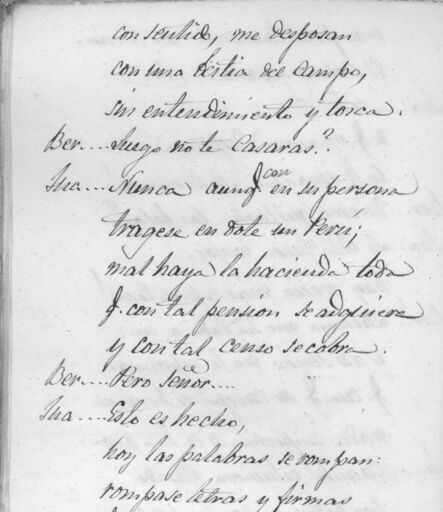 con sentido, me desposan
con una bestia del campo,
sin entendimiento y tosca.
Ber.... Luego no te casaras?
Jua.... Nunca aunq. con en su persona
tragese en dote un Perú;
mal haya la hacienda toda
q. con tal pension se adquiere
y con tal censo se cobra.
Ber.... Pero señor....
Jua.... Esto es hecho,
hoy las palabras se rompan
rompase letras y firmas